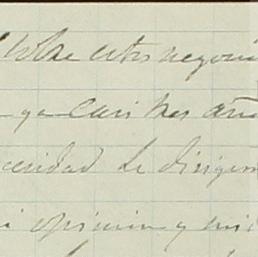 Sobre estos negocio
ya casi tres año
cesidad de dirigirm
i opinion y mi